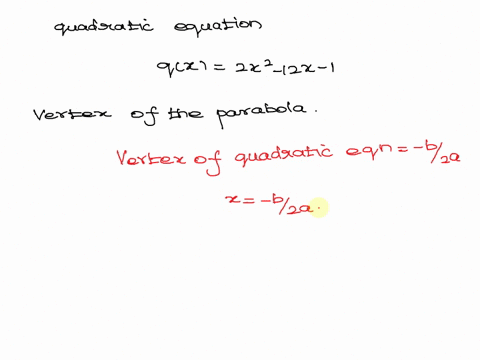 quadratic equation
q(x) = 2x²-12x-1
Vertex of the parabola.
Vertex of quadratic eqn = -b/2a
x = -b/2a.